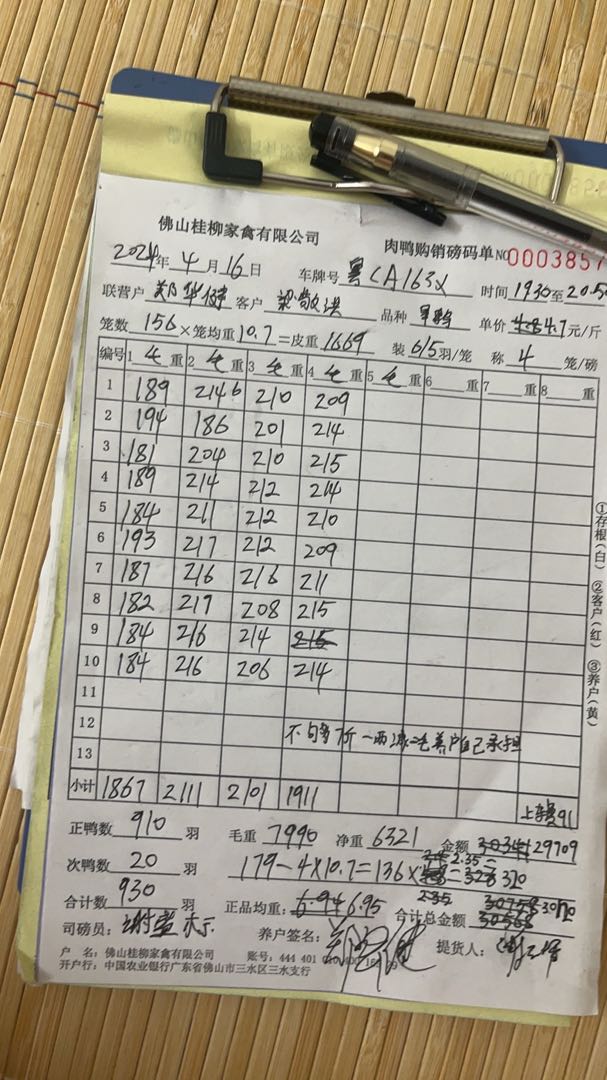 佛山桂柳家禽有限公司
肉鸭购销磅码单 NO 0003857
2024年 4月16日 车牌号 粤CA163X 时间 1930至20:50
联营户 郑华健 客户 梁敬洪 品种 单价 4.7元/斤
笼数 156 ×笼均重 10.7 =皮重 1669 装 6/5 羽/笼 称 4 笼/磅
编号 1 重 2 重 3 重 4 重 5 重 6 重 7 重 8 重
1 189 214 210 209
2 194 186 201 214
3 181 204 210 215
4 189 214 212 214
5 184 211 212 210
6 193 217 212 209
7 187 216 216 211
8 182 217 208 215
9 184 216 214 215
10 184 216 206 214
11
12
不够7斤一两减二毛养户自己承担
13
小计 1867 2111 2101 1911 上车费91
正鸭数 910 羽 毛重 7990 净重 6321 金额 30341 29709
次鸭数 20 羽 179-4×10.7=136× 2.35 = 320
合计数 930 羽 正品均重: 6.94 6.95 合计总金额 30566
司磅员: 养户签名: 提货人:
户 名: 佛山桂柳家禽有限公司 账号: 444 401
开户行: 中国农业银行广东省佛山市三水区三水支行
①存根(白) ②客户(红) ③养户(黄)